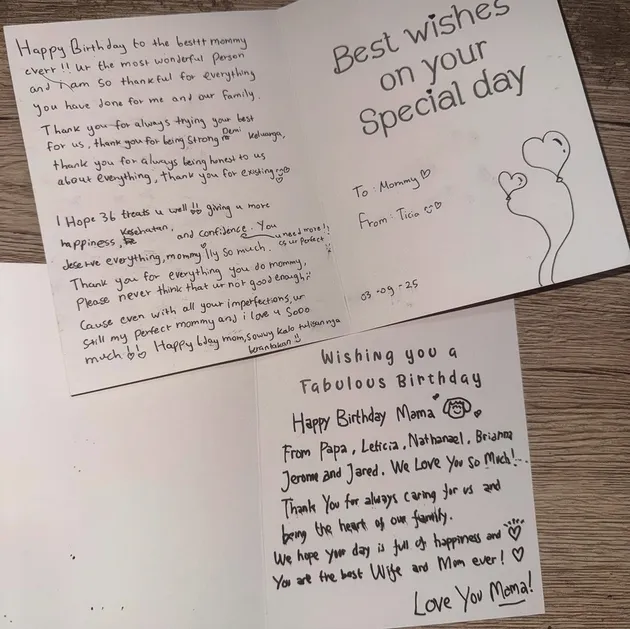 Happy Birthday to the besttt mommy
everr !! ur the most wonderful person
and i am so thankful for everything
you have done for me and our family.
Thank you for always trying your best
for us, thank you for being strong Demi Keluarga,
thank you for always being honest to us
about everything, thank you for existing
I Hope 36 treats u well !! giving u more
happiness, Kesehatan, and confidence. You
deserve everything, mommy ily so much.
u need more!!
cs ur perfect
Thank you for everything you do mommy,
Please never think that ur not good enough
Cause even with all your imperfections, ur
still my perfect mommy and i love u sooo
much !! Happy bday mom, sowwy kalo tulisannya
berantakan
Best wishes
on your
Special day
To : Mommy
From : Ticia
03 - 09 - 25
Wishing you a
Fabulous Birthday
Happy Birthday Mama
From Papa, Leticia, Nathanael, Brianna
Jerome and Jared. We Love You So Much!
Thank You for always caring for us and
being the heart of our family.
We hope your day is full of happiness and
You are the best Wife and Mom ever!
Love You Mama!